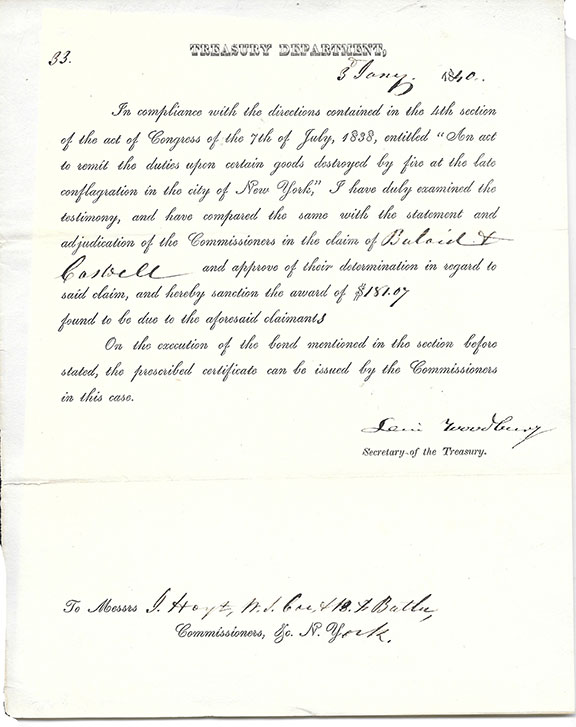 33.
TREASURY DEPARTMENT,
3d Jany. 1840.
In compliance with the directions contained in the 4th section
of the act of Congress of the 7th of July, 1838, entitled "An act
to remit the duties upon certain goods destroyed by fire at the late
conflagration in the city of New York," I have duly examined the
testimony, and have compared the same with the statement and
adjudication of the Commissioners in the claim of &
Caswell and approve of their determination in regard to
said claim, and hereby sanction the award of $181.07
found to be due to the aforesaid claimants
On the execution of the bond mentioned in the section before
stated, the prescribed certificate can be issued by the Commissioners
in this case.
Levi Woodbury
Secretary of the Treasury.
To Messrs J. Hoyt, W. S. Coe, & B. F. Butler,
Commissioners, &c. N. York.